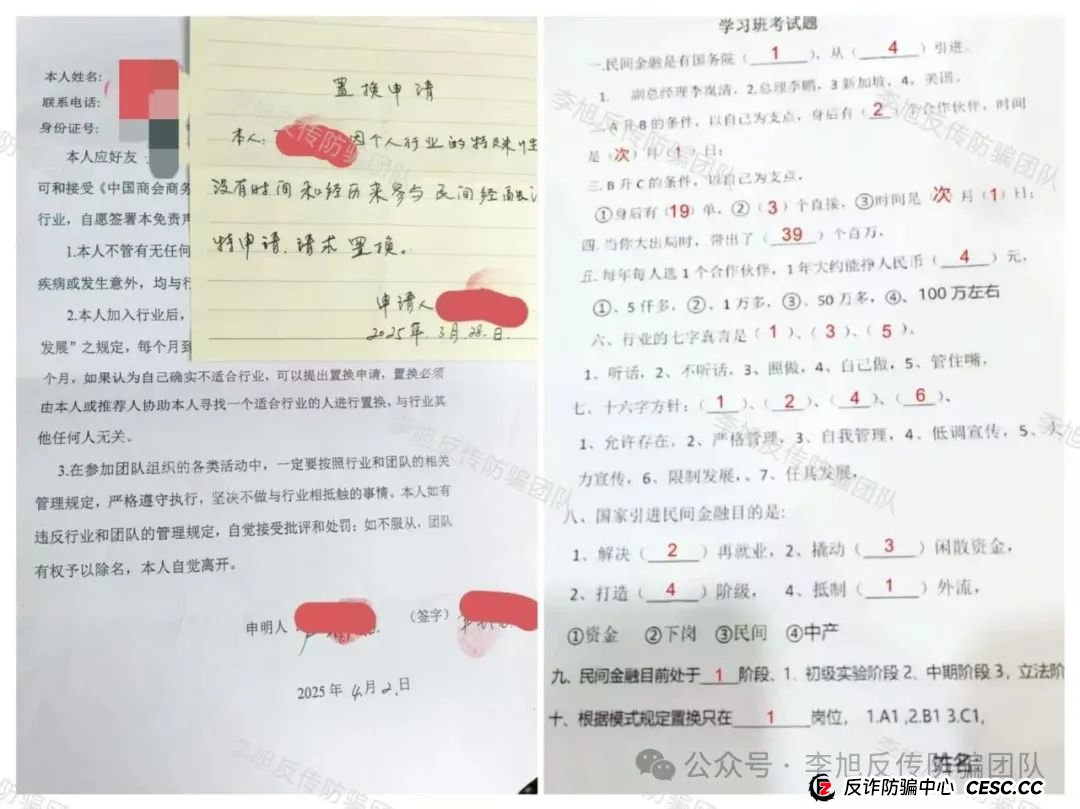 本人姓名:
联系电话:
身份证号:
本人应好友
可和接受《中国商会商务
行业，自愿签署本免责声
1.本人不管有无任何
疾病或发生意外，均与行
2.本人加入行业后，
发展”之规定，每个月到
个月，如果认为自己确实不适合行业，可以提出置换申请，置换必须
由本人或推荐人协助本人寻找一个适合行业的人进行置换，与行业其
他任何人无关。
3.在参加团队组织的各类活动中，一定要按照行业和团队的相关
管理规定，严格遵守执行，坚决不做与行业相抵触的事情。本人如有
违反行业和团队的管理规定，自觉接受批评和处罚；如不服从，团队
有权予以除名，本人自觉离开。
申明人： （签字）
2025年 4月2日
置换申请
本人： 因个人行业的特殊性
没有时间和经历来参与民间经融
特申请.请求置换。
申请人
2025年.3月.28.日.
学习班考试题
一.民间金融是有国务院（ 1 ），从（ 4 ）引进。
1. 副总经理李岚清，2.总理李鹏，3新加坡，4，美国。
A升B的条件，以自己为支点，身后有（ 2 ）个合作伙伴，时间
是（次）月（1）日；
三.B升C的条件，以自己为支点，
①身后有（19）单，②（3）个直接，③时间是（次 月（1）日；
四.当你大出局时，带出了（ 39 ）个百万，
五.每年每人选1个合作伙伴，1年大约能挣人民币（ 4 ）元，
①、5仟多，②、1万多，③、50万多，④、100万左右
六、行业的七字真言是（ 1 ）、（ 3 ）、（ 5 ）、
1、听话，2、不听话，3、照做，4、自己做，5、管住嘴，
七、十六字方针：（ 1 ）、（ 2 ）、（ 4 ）、（ 6 ）、
1、允许存在，2、严格管理，3、自我管理，4、低调宣传，5、大
力宣传，6、限制发展，、7、任其发展，
八、国家引进民间金融目的是:
1、解决（ 2 ）再就业，2、撬动（ 3 ）闲散资金，
2、打造（ 4 ）阶级， 4、抵制（ 1 ）外流，
①资金 ②下岗 ③民间 ④中产
九、民间金融目前处于 1 阶段、1. 初级实验阶段 2、中期阶段 3，立法阶
十、根据模式规定置换只在 1 岗位， 1.A1 ,2.B1 3.C1,
姓名
公众号·李旭反传防骗团队
反诈防骗中心 CESC.CC
李旭反传防骗团队